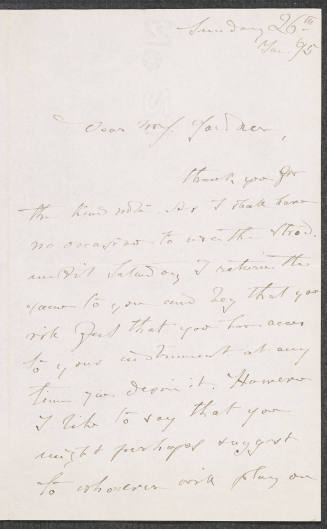 Sunday 26th
Jan. 95
Dear Mrs. Gardner,
thank you for
the kind note. As I shall have
no occasion to use the Strad.
until Saturday I return the
same to you and beg that you
that you have access
to your instrument at any
time you desire it. However
I like to say that you
might perhaps suggest
to whoever will play on